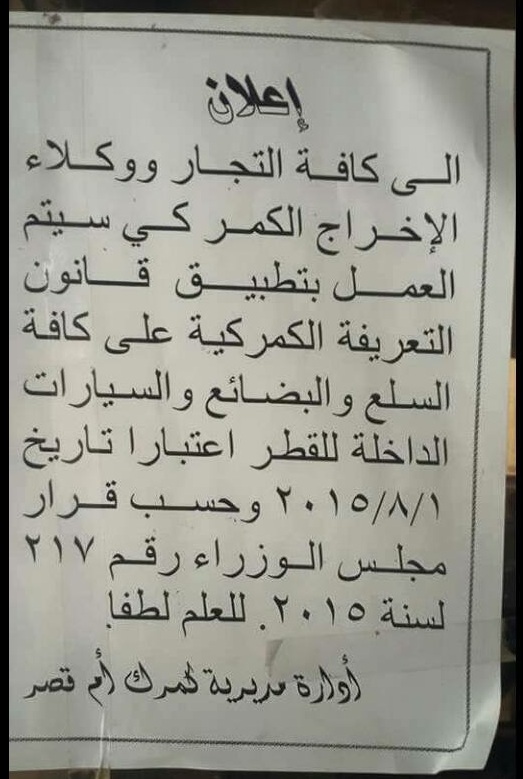 إعلان
الى كافة التجار ووكلاء
الإخراج الكمر كي سيتم
العمل بتطبيق قانون
التعريفة الكمركية على كافة
السلع والبضائع والسيارات
الداخلة للقطر اعتبارا تاريخ
٢٠١٥/٨/١ وحسب قرار
مجلس الوزراء رقم ٢١٧
لسنة ٢٠١٥. للعلم لطفا.
أوارة مديرية كمرك أم قصر